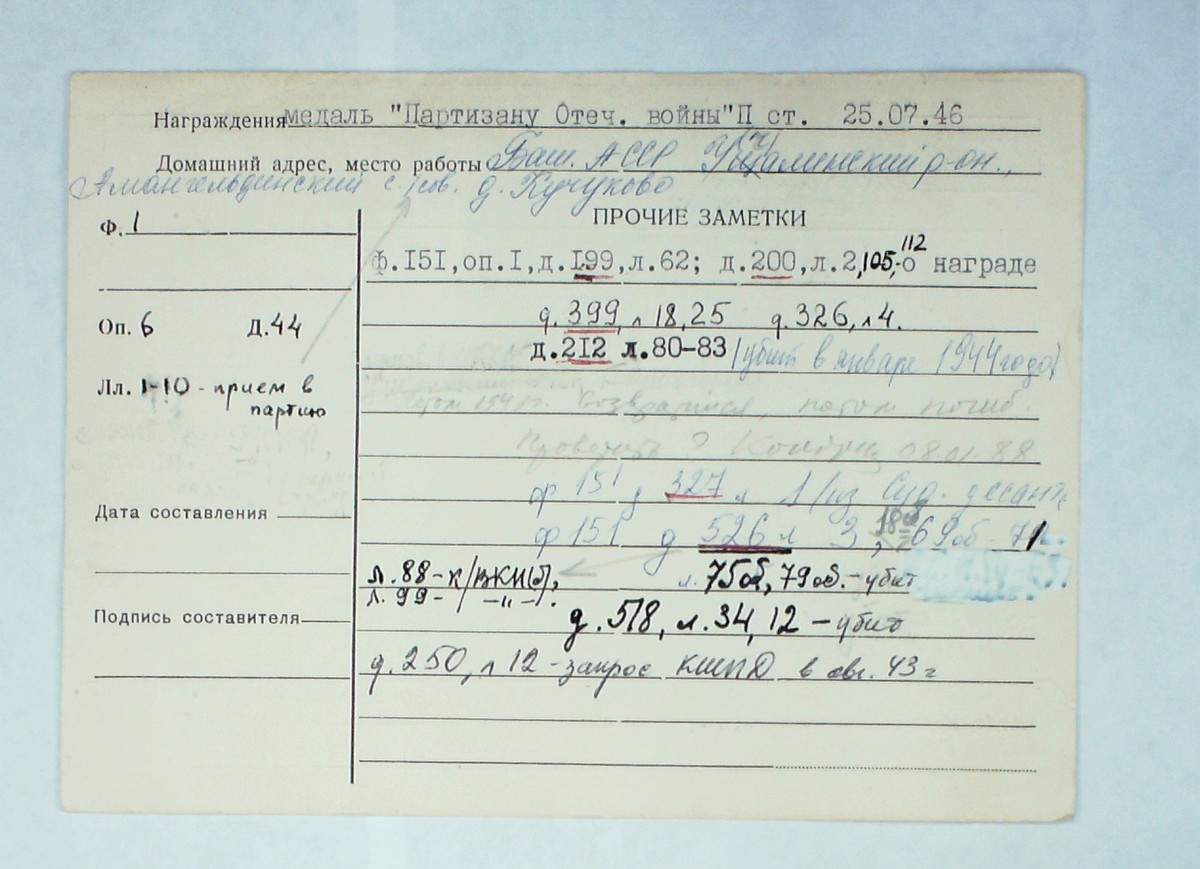 Награждения медаль "Партизану Отеч. войны" II ст. 25.07.46
Домашний адрес, место работы Баш. АССР Учалинский р-он.,
Амангельдинский с/сов. д. Кучуково
Ф. 1
ПРОЧИЕ ЗАМЕТКИ
Ф.151,оп.1,д.199,л.62; д.200,л.2,105,-о награде
112
Оп. 6 Д.44
д. 399, л 18,25 д.326, л 4.
д.212 л.80-83 /убит в январе 1944 года/
Лл. 1-10 - прием в
партию
возвратился, потом погиб.
Проверить ? 08.01.88
ф 151 д 327 л 1 /из Суд. десанта
Дата составления
ф 151 д 526 л 3, 69об - 71
л.88-к/ВКП(б), л. 75об, 79об.-убит
л.99- / -"- /.
Подпись составителя
д.518, л.34, 12 - убит
д.250, л 12 - запрос КШПД в авг. 43 г